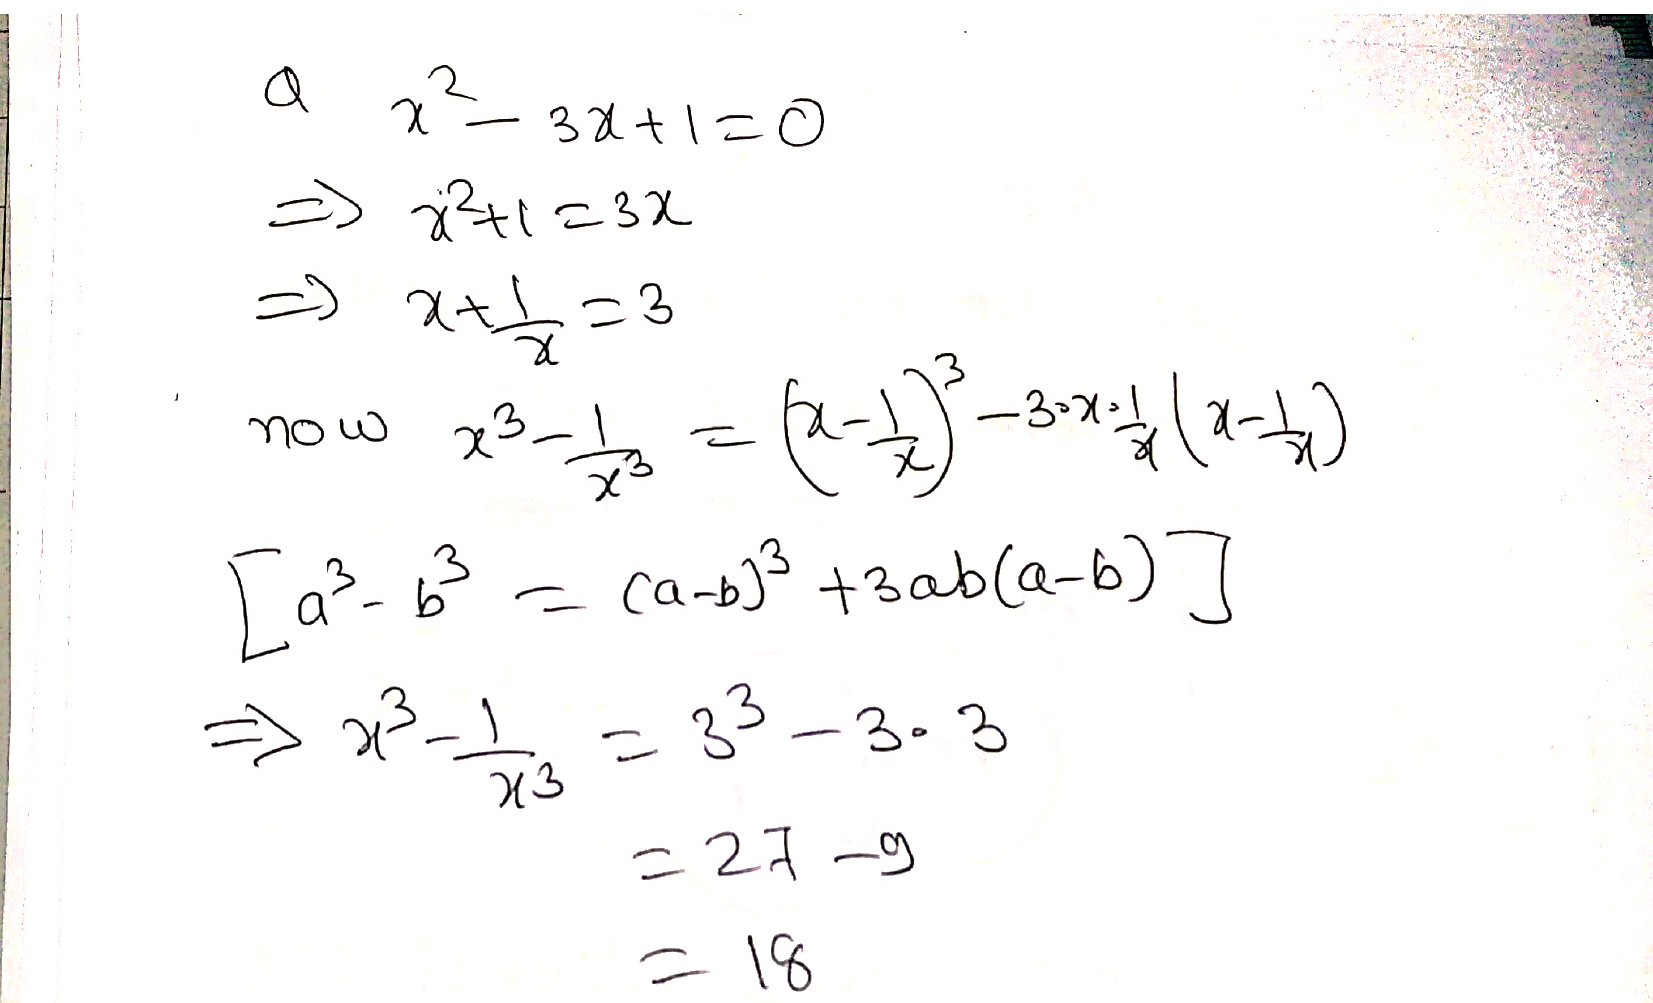 Q x² - 3x + 1 = 0
=> x² + 1 = 3x
=> x + 1/x = 3
now x³ - 1/x³ = (x - 1/x)³ - 3·x·1/x (x - 1/x)
[a³ - b³ = (a-b)³ + 3ab(a-b)]
=> x³ - 1/x³ = 3³ - 3·3
= 27 - 9
= 18